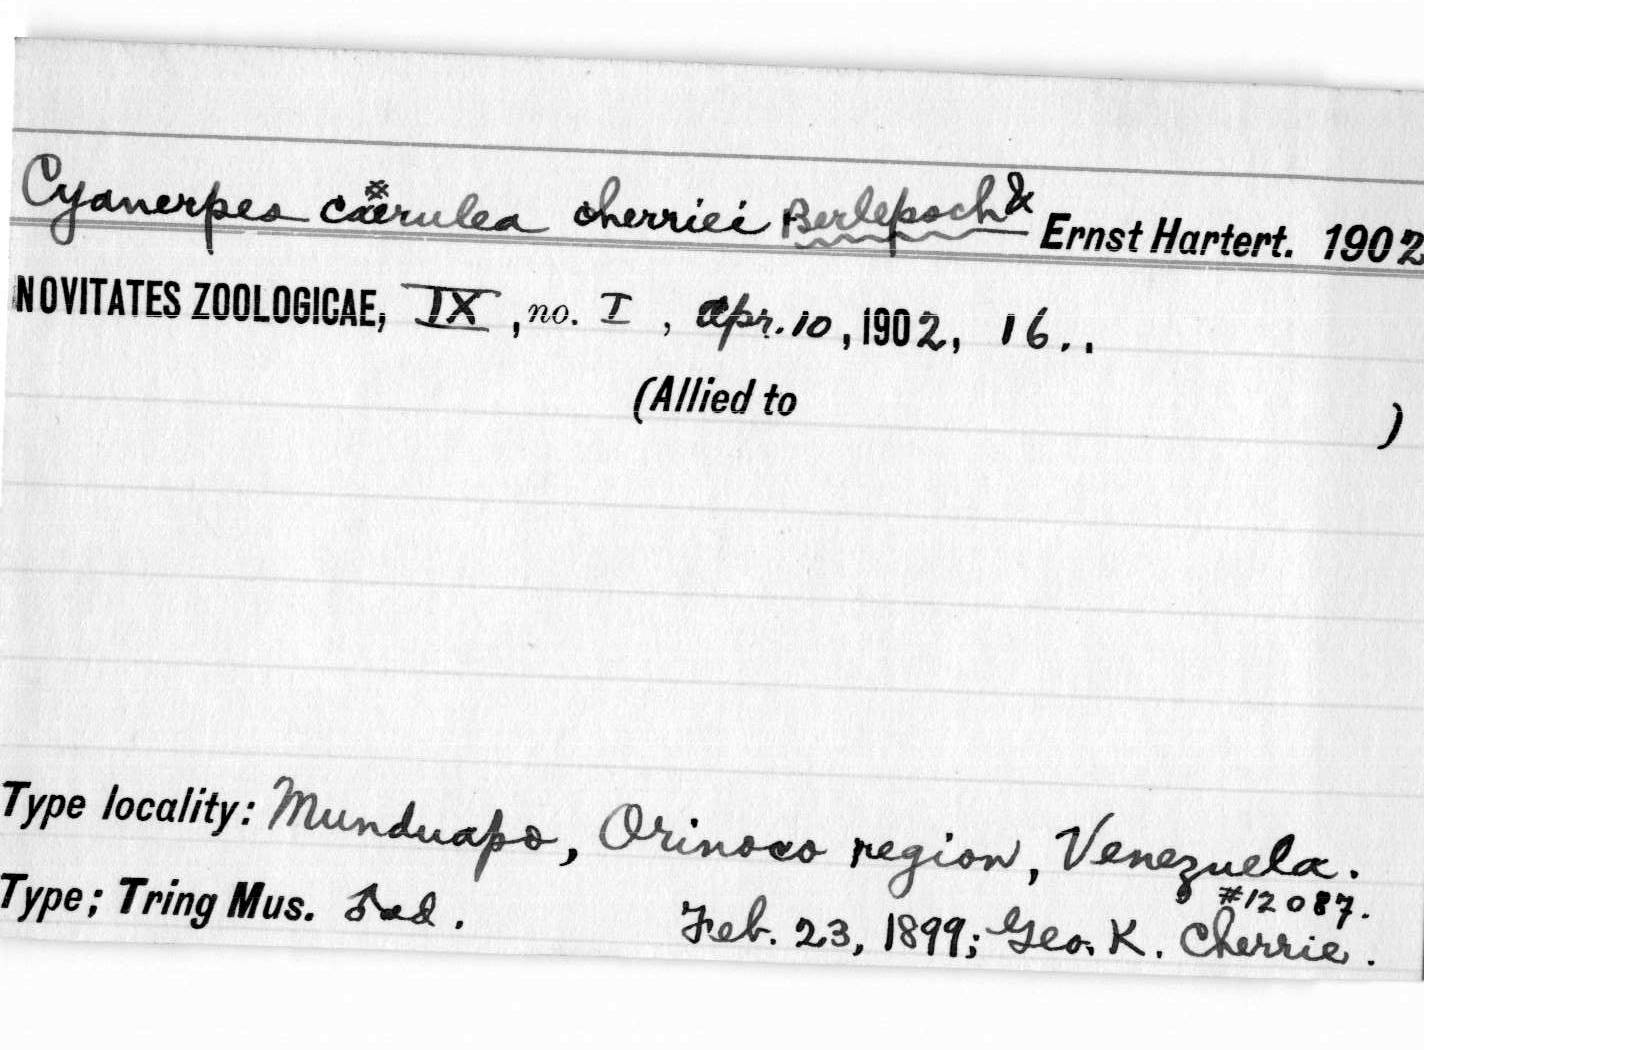 Cyanerpes cærulea cherriei Berlepsch & Ernst Hartert. 1902
NOVITATES ZOOLOGICAE, IX, no. I, Apr. 10, 1902, 16..
(Allied to )
Type locality: Munduapo, Orinoco region, Venezuela.
#12087.
Type; Tring Mus. ♂ad. Feb. 23, 1899; Geo. K. Cherrie.